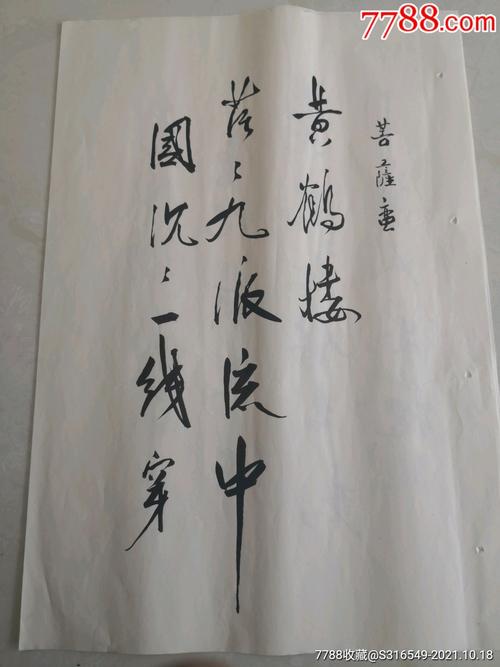 7788.com
中国收藏热线
菩薩蛮
黄鶴楼
茫〻九派流中
國沉〻一线穿
7788收藏@S316549-2021.10.18